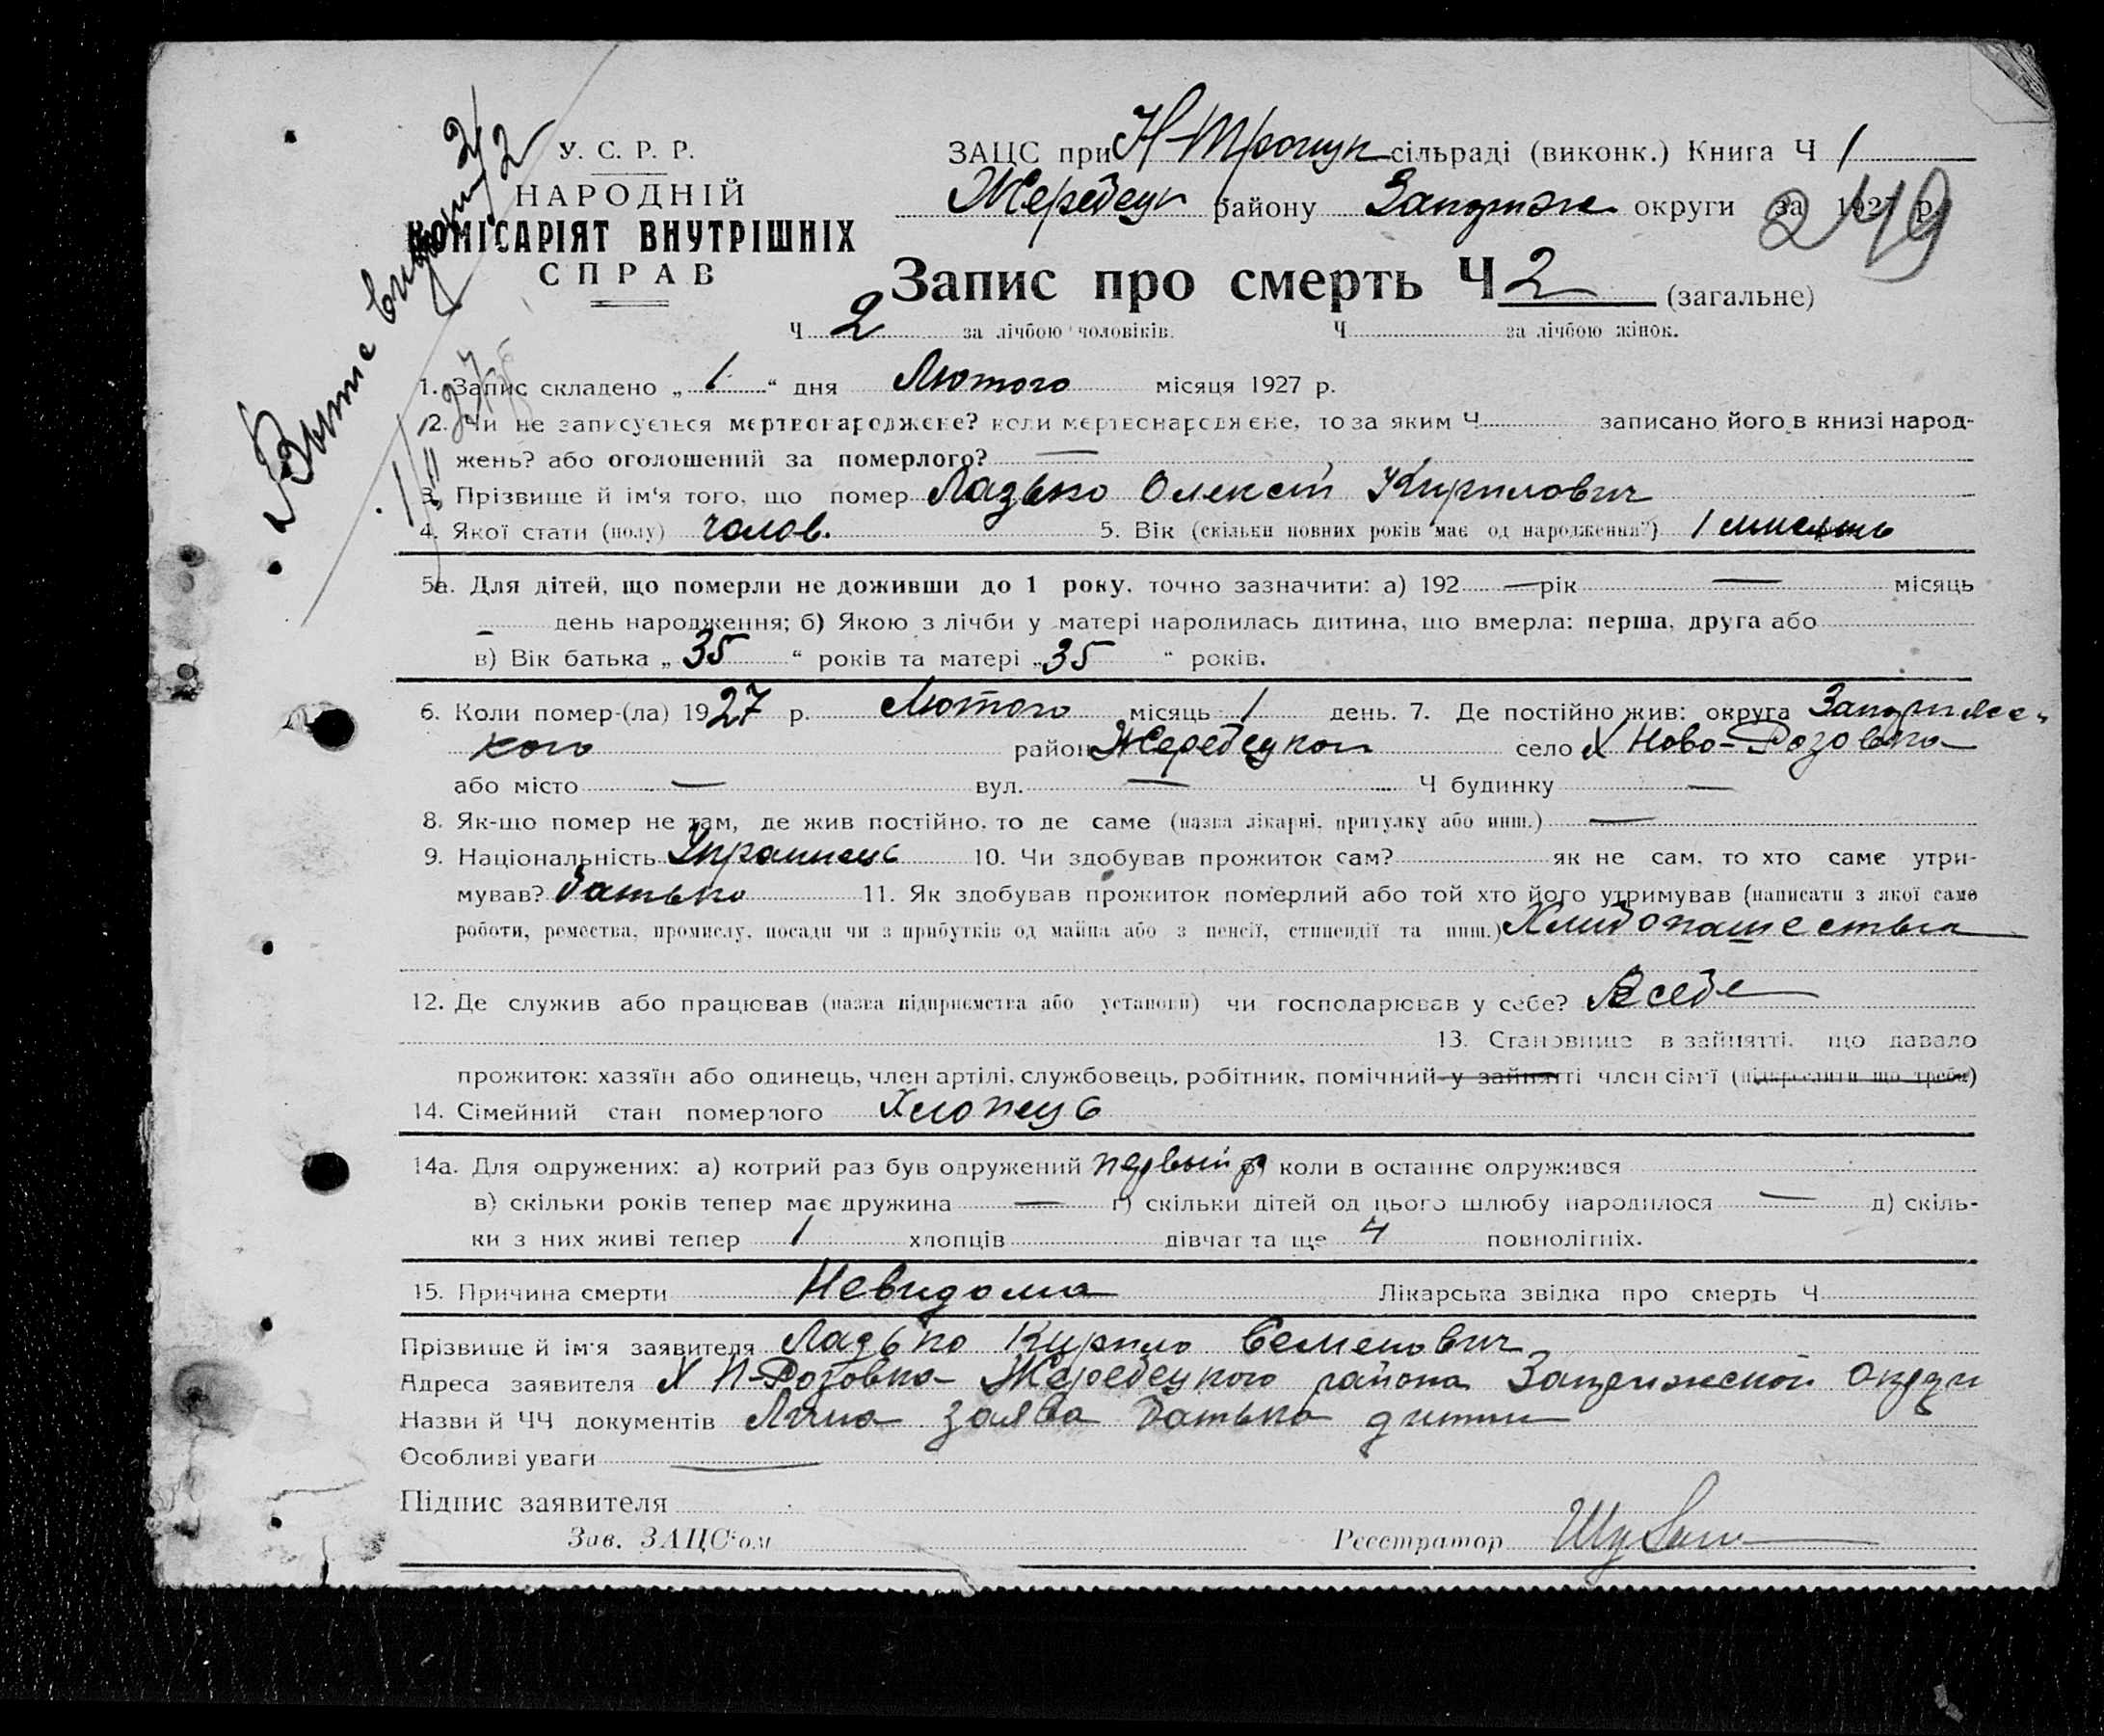 У. С. Р. Р.
НАРОДНІЙ
КОМІСАРІЯТ ВНУТРІШНІХ
СПРАВ
ЗАЦС при Н-Трощук сільраді (виконк.) Книга Ч 1
Жеребецк району Запориж округи за 1927 р.
249
Запис про смерть Ч 2 (загальне)
Ч 2 за лічбою чоловіків. Ч за лічбою жінок.
1. Запис складено „ 1 “ дня Лютого місяця 1927 р.
2. Чи не записується мертвонароджене? коли мертвонароджене, то за яким Ч записано його в книзі народ-
жень? або оголошений за померлого? —
3. Прізвище й ім‘я того, що помер Лазько Олексій Кирилович
4. Якої стати (полу) чолов. 5. Вік (скільки повних років має од народження?) 1 мисяць
5а. Для дітей, що померли не доживши до 1 року, точно зазначити: а) 192 — рік — місяць
— день народження; б) Якою з лічби у матері народилась дитина, що вмерла: перша, друга або
в) Вік батька „ 35 “ років та матері „ 35 “ років.
6. Коли помер-(ла) 1927 р. Лютого місяць 1 день. 7. Де постійно жив: округа Запориже-
кого район Жеребецкой село Х Ново-Розовка
або місто — вул. — Ч будинку —
8. Як-що помер не там, де жив постійно, то де саме (назва лікарні, притулку або инш.) —
9. Національність Украинець 10. Чи здобував прожиток сам? як не сам, то хто саме утри-
мував? батько 11. Як здобував прожиток померлий або той хто його утримував (написати з якої саме
роботи, ремества, промислу, посади чи з прибутків од майна або з пенсії, стипендії та инш.) Хлибопашество
12. Де служив або працював (назва підприємства або установи) чи господарював у себе? В себе
13. Становище в зайнятті, що давало
прожиток: хазяїн або одинець, член артілі, службовець, робітник, помічний у зайнятті член сім'ї (підкреслити що треба)
14. Сімейний стан померлого Хлопець
14а. Для одружених: а) котрий раз був одружений первый р б) коли в останнє одружився
в) скільки років тепер має дружина — г) скільки дітей од цього шлюбу народилося — д) скіль-
ки з них живі тепер 1 хлопців дівчат та ще 4 повнолітніх.
15. Причина смерти Невидома Лікарська звідка про смерть Ч
Прізвище й ім'я заявителя Лазько Кирило Семенович
Адреса заявителя Х Н-Розовка Жеребецкого района Запорижской округи
Назви й ЧЧ документів Лична заява батька дитини
Особливі уваги —
Підпис заявителя
Зав. ЗАЦС‘ом Реєстратор